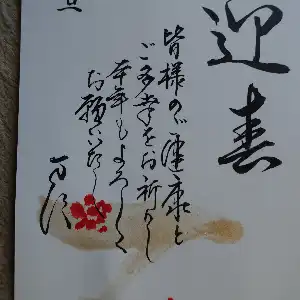 迎春
皆様のご健康と
ご多幸をお祈りし
本年もよろしく
お願いいたし
旦